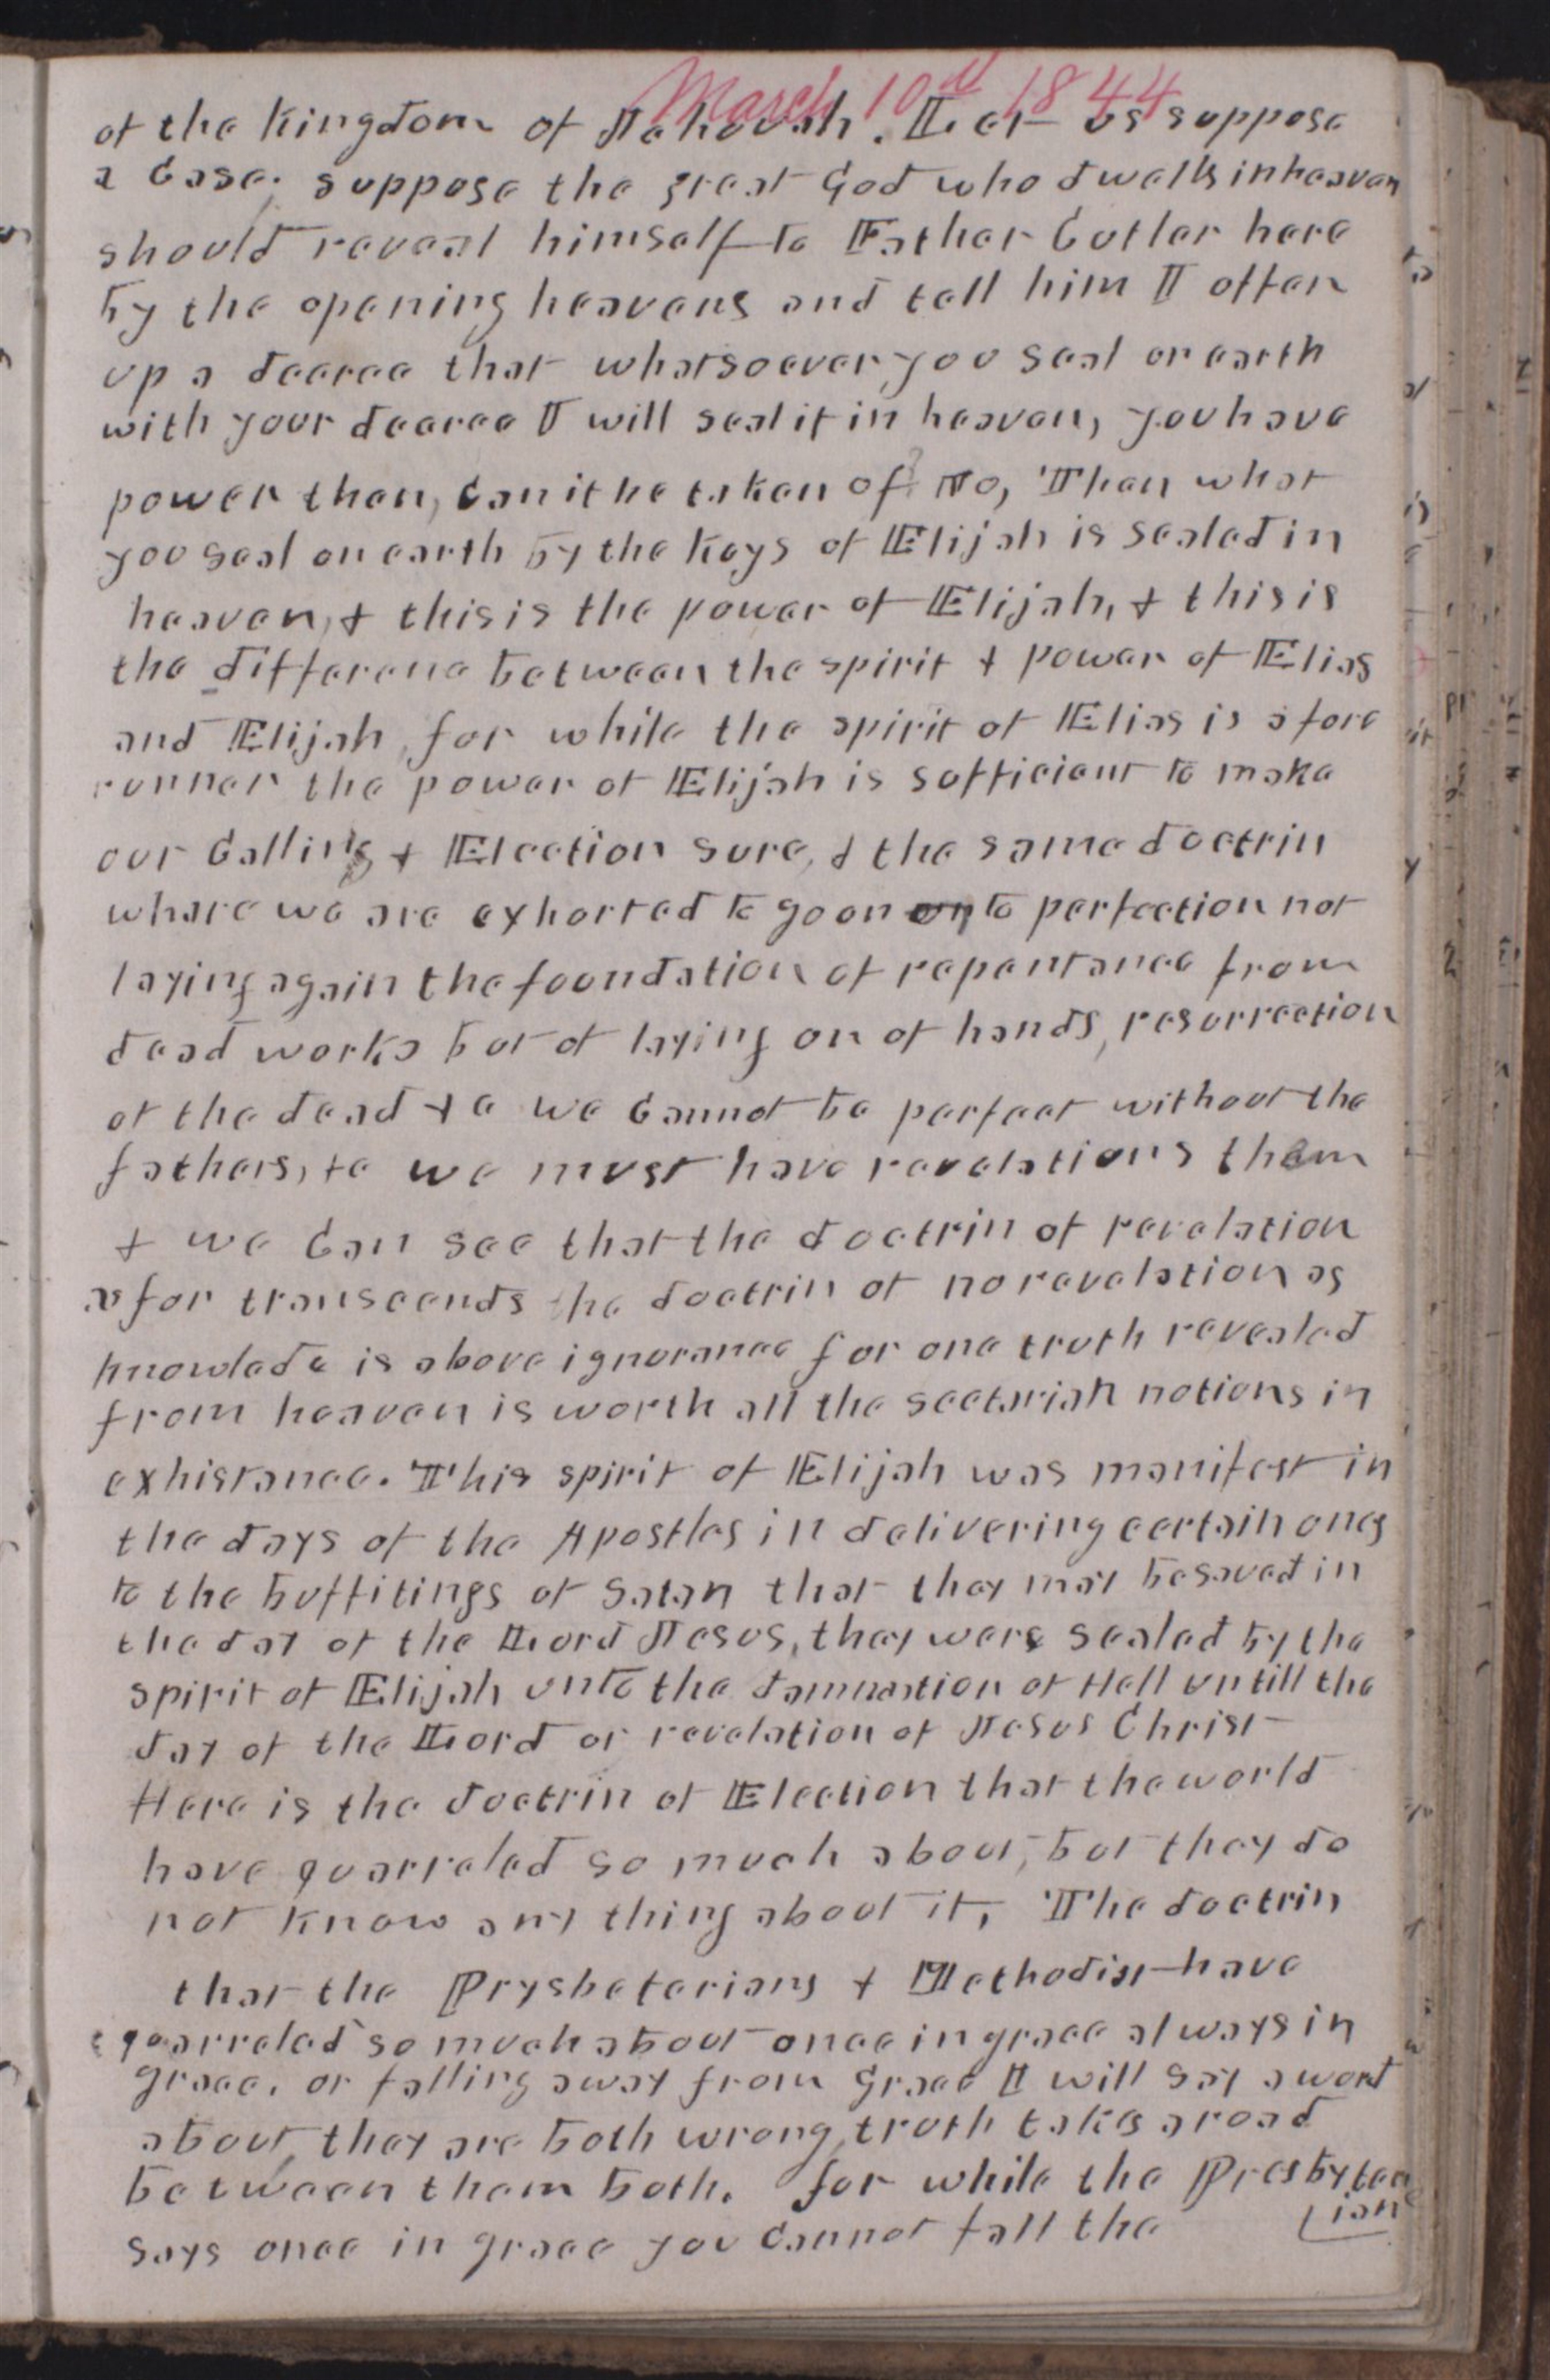 March 10th 1844
of the kingdom of Jehovah. Let us suppose
a Case; suppose the great God who dwells in heaven
should reveal himself to Father Cutler here
by the opening heavens and tell him I offer
up a decree that whatsoever you seal on earth
with your decree I will seal it in heaven, you have
power then, can it be taken of? No, Then what
you seal on earth by the keys of Elijah is sealed in
heaven, & this is the power of Elijah, & this is
the differenc between the spirit & power of Elias
and Elijah, for while the spirit of Elias is a fore
runner the power of Elijah is sufficient to make
our Calling & Election sure, & the same doctrin
where we are exhorted to go on to perfection not
laying again the foundation of repentance from
dead works but of laying on of hands, resurrection
of the dead &c we Cannot be perfect without the
fathers, &c we must have revelations them
& we Can see that the doctrin of revelation
as far transcends the doctrin of no revelation as
knowledge is above ignorance for one truth revealed
from heaven is worth all the sectarian notions in
exhistance. This spirit of Elijah was manifest in
the days of the Apostles in delivering certain ones
to the buffitings of Satan that they may be saved in
the day of the Lord Jesus, they were sealed by the
spirit of Elijah unto the damnation of Hell untill the
day of the Lord or revelation of Jesus Christ
Here is the doctrin of Election that the world
have quarreled so much about, but they do
not know any thing about it, The doctrin
that the Prysbeterians & Methodist have
quarreled so much about once in grace always in
grace, or falling away from Grace I will say a word
about, they are both wrong, truth takes a road
between them both. for while the Presbyter
ian
says once in grace you cannot fall the